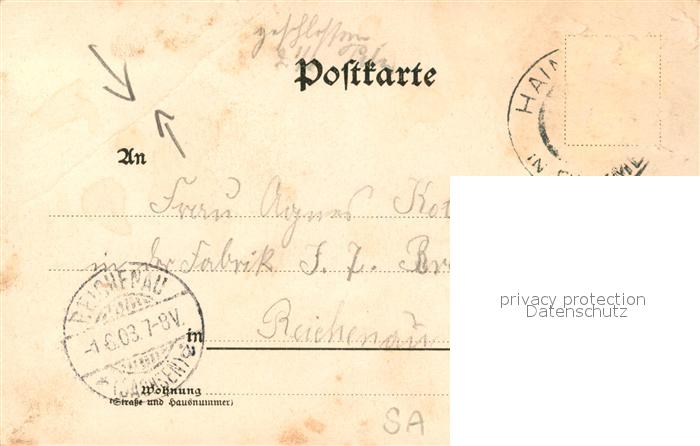 Postkarte
HAIN
IN
An
Frau Agnes
in der Fabrik J. F.
REICHENAU
-1.6.03.7-8V.
* (SACHSEN) a
in Reichenau
Wohnung
(Straße und Hausnummer)
SA
privacy protection
Datenschutz